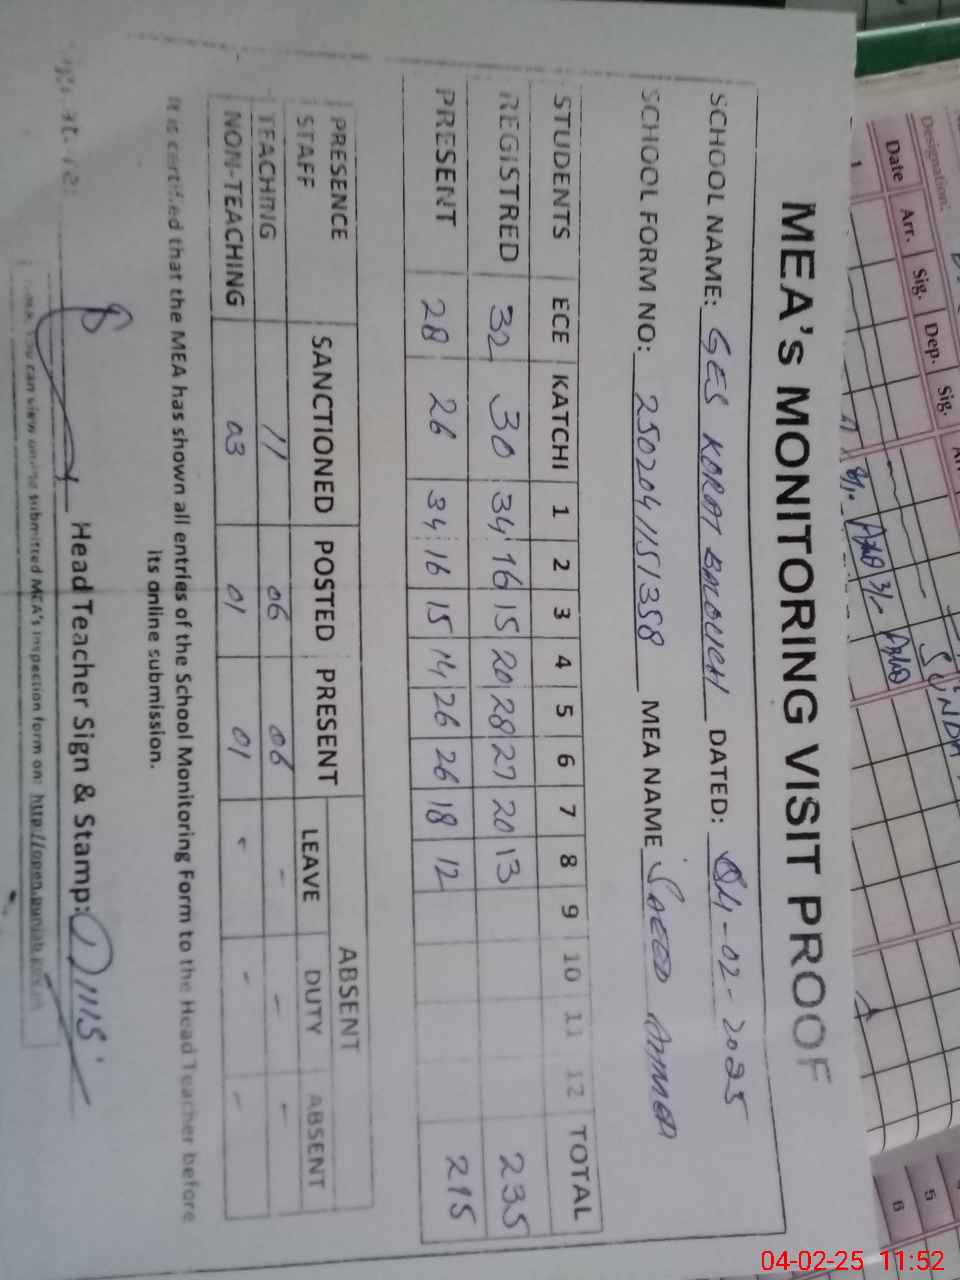 MEA's MONITORING VISIT PROOF
SCHOOL NAME: GES KORAT BALOUCH DATED: 04-02-2025
SCHOOL FORM NO: 2502041151358 MEA NAME SAEED AHMED
STUDENTS ECE KATCHI 1 2 3 4 5 6 7 8 9 10 11 12 TOTAL
REGISTRED 32 30 34 16 15 20 28 27 20 13 235
PRESENT 28 26 34 16 15 14 26 26 18 12 215
PRESENCE STAFF SANCTIONED POSTED PRESENT ABSENT
LEAVE DUTY ABSENT
TEACHING 11 06 06 - - -
NON-TEACHING 03 01 01 - - -
It is certified that the MEA has shown all entries of the School Monitoring Form to the Head Teacher before
its online submission.
Head Teacher Sign & Stamp:
can view online submitted MEA's inspection form on: http://open.punjab
Designation:
Date Arr. Sig. Dep. Sig.
1
SUNDAY
5
6
04-02-25 11:52